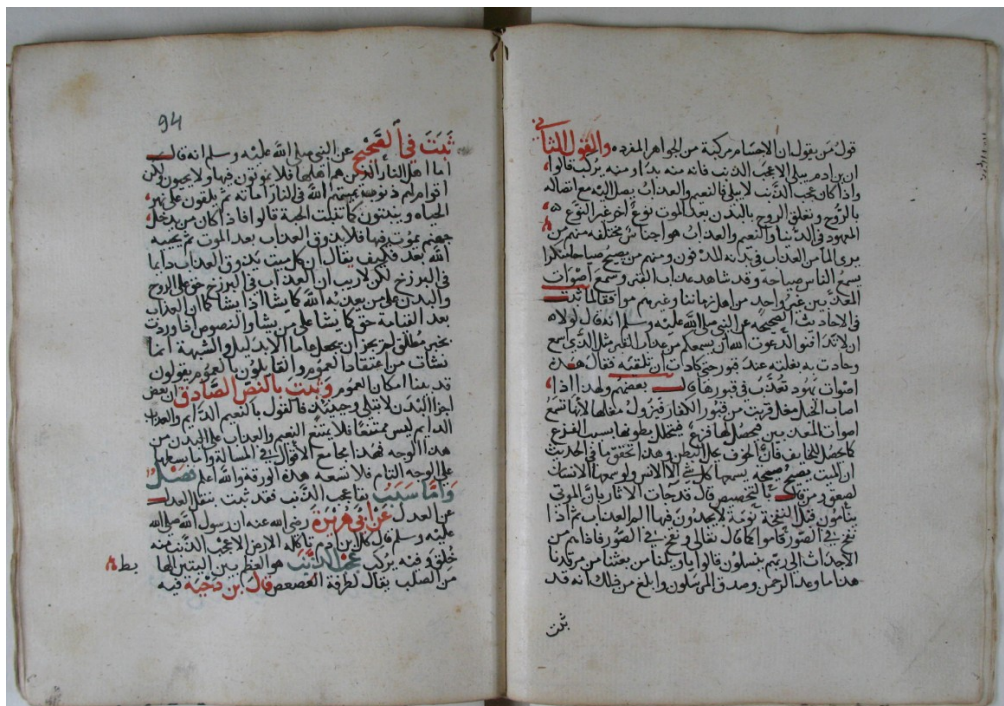 قول من يقول ان الاجسام مركبة من الجواهر المفرده والقول الثاني
ان بن ادم يبلى الا عجب الذنب فانه منه بدا ومنه يركب قالوا
واذا كان عجب الذنب لا يبلى فالنعيم والعذاب يصل اليه مع اتصاله
بالروح وتعلق الروح بالبدن بعد الموت نوع اخر غير النوع
المعهود في الدنيا والنعيم والعذاب هو اجناس مختلفه منهم من
يرى الم العذاب في بدنه للمدفون ومنهم من يصيح صياحا منكرا
يسمع الناس صياحه وقد شاهد عذاب القبر وسمع اصوات
المعذبين غير واحد من اهل زماننا وغيرهم موافقا لما ثبت
في الاحاديث الصحيحه عن النبي صلى الله عليه وسلم انه قال لولا
ان لا تدافنوا لدعوت الله ان يسمعكم من عذاب القبر مثل الذي اسمع
وحادت به بغلته عند قبور حتى كادت ان تلقيه فقال هذه
اصوات يهود تعذب في قبورها قال بعضهم ولهذا اذا
اصاب الخيل مغل قربت من قبور الكفار فيزول مغلها لانها تسمع
اصوات المعذبين فيحصل لها فزع فينحل بطونها بسبب الفزع
كما يحصل للخايف فان الخوف يحل البطن وهذا تحقق ما في الحديث
ان الميت يصيح صيحة يسمعها كل شي الا الانس ولو سمعها الانسان
لصعق ومن قال بالتخصيص قال قد جات الاثار بان الموتى
ينامون قبل النفخة نومة لا يجدون فيها الم العذاب ثم اذا
نفخ في الصور قاموا كما قال تعالى ونفخ في الصور فاذا هم من
الاجداث الى ربهم ينسلون قالوا يا ويلنا من بعثنا من مرقدنا
هذا ما وعد الرحمن وصدق المرسلون وابلغ من ذلك انه قد
ثبت
94
ثبت في الصحيح عن النبي صلى الله عليه وسلم انه قال
اما اهل النار الذين هم اهلها فلا يموتون فيها ولا يحيون ولكن
اقوام لهم ذنوب يميتهم الله في النار اماتة ثم يلقون على نهر
الحياه وينبتون كما تنبت الحبة قالوا فاذا كان من يدخل
جهنم يموت فيها فلا يذوق العذاب بعد الموت ثم يحييه
الله بعد فكيف يقال ان كل ميت يذوق العذاب دايما
في البرزخ لكن لا ريب ان العذاب في البرزخ حق على الروح
والبدن على من يعذبه الله كما شا اذا يشا كما ان العذاب
بعد القيامة حق كما يشا على من يشا والنصوص اذا وردت
بخبر مطلق لم يجز ان يجعل عاما الا بدليل والشبهة انما
نشات من اعتقاد العموم والقايلون بالعموم يقولون
قد بينا امكان العموم وثبت بالنص الصادق ان بعض
اجزا البدن لا يبلى وحينئذ فالقول بالنعيم الدايم والعذاب
الدايم ليس ممتنعا فلا يمتنع النعيم والعذاب على البدن من
هذا الوجه فهذا مجامع الاقوال في المسالة واما بسطها
على الوجه التام فلا تسعه هذه الورقة والله اعلم فصل
واما سبب بقا عجب الذنب فقد ثبت بنقل العدل
عن العدل عن ابي هريرة رضي الله عنه ان رسول الله صلى الله
عليه وسلم قال كل ابن ادم ياكله الارض الا عجب الذنب منه
خلق وفيه يركب عجب الذنب هو العظم بين اليتين الها
بط
من الصلب يقال لطرفه العصعص قال بن دحية فيه